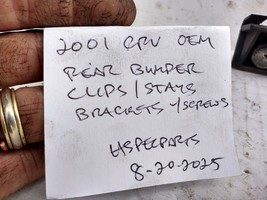 2001 CRV OEM
REAR BUMPER
CLIPS/STAYS
BRACKETS w/SCREWS
HSPECPARTS
8-20-2025